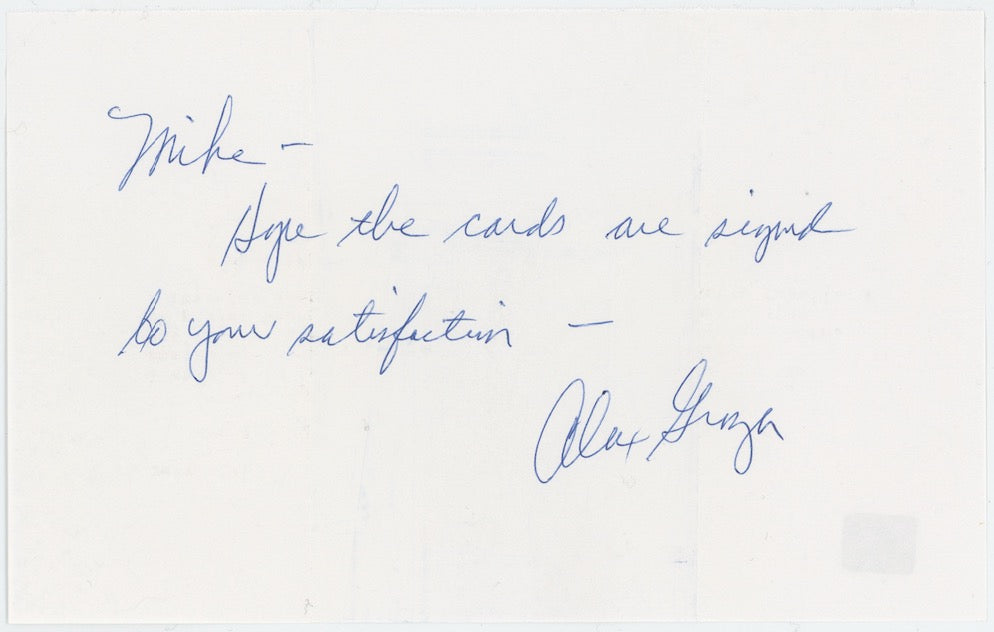 Mike -
Hope the cards are signed
to your satisfaction -
Alex Groza